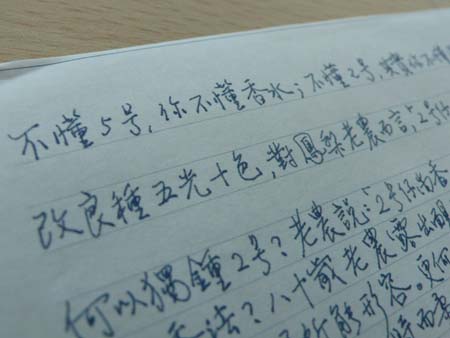 不懂5号,你不懂香水;不懂2号,其實你不懂
改良種五光十色,對鳳梨老農而言,2号
何以獨鍾2号?老農說:2号仔尚香
法?八十歲老農
所能形容。更何